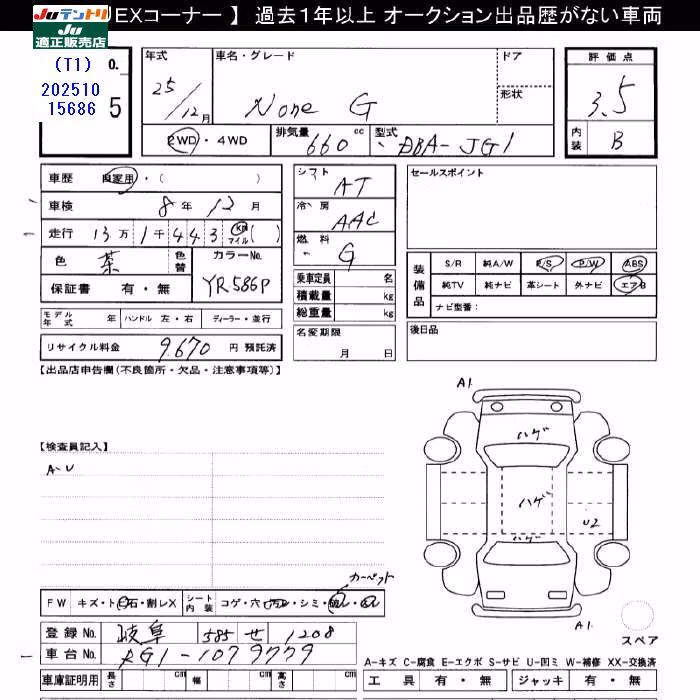 EXコーナー 】 過去１年以上 オークション出品歴がない車両
Juテントリ
Ju
適正販売店
(T1)
202510
15686
0.
5
年式
25/12月
車名・グレード
None G
ドア
形状
評価点
3.5
内装
B
2WD・4WD
排気量
660 cc
型式
DBA-JG1
車歴 自家用・( )
車検 8年 12月
走行 13万1千443 km マイル( )
色 茶 色替
カラーNo.
YR586P
保証書 有・無
シフト
AT
冷房
AAC
燃料
G
乗車定員 名
積載量 kg
総重量 kg
名変期限
月 日
セールスポイント
装備品
S/R 純A/W P/S P/W ABS
純TV 純ナビ 革シート 外ナビ エアB
ナビ型番：
後日品
モデル年式 年 ハンドル 左・右 ディーラー・並行
リサイクル料金 9,670 円 預託済
【出品店申告欄(不良箇所・欠品・注意事項等)】
【検査員記入】
A-U
A1
ハゲ
ハゲ
ハゲ
U2
A1
スペア
カーペット
FW キズ・ト石・割レX シート内装 コゲ・穴・スレ・シミ・破レ・
登録No. 岐阜 585 せ 1208
車台No. JG1-1079779
車庫証明用 長さ cm 幅 cm 高さ cm
A-キズ C-腐食 E-エクボ S-サビ U-凹ミ W-補修 XX-交換済
工具 有・無 ジャッキ 有・無